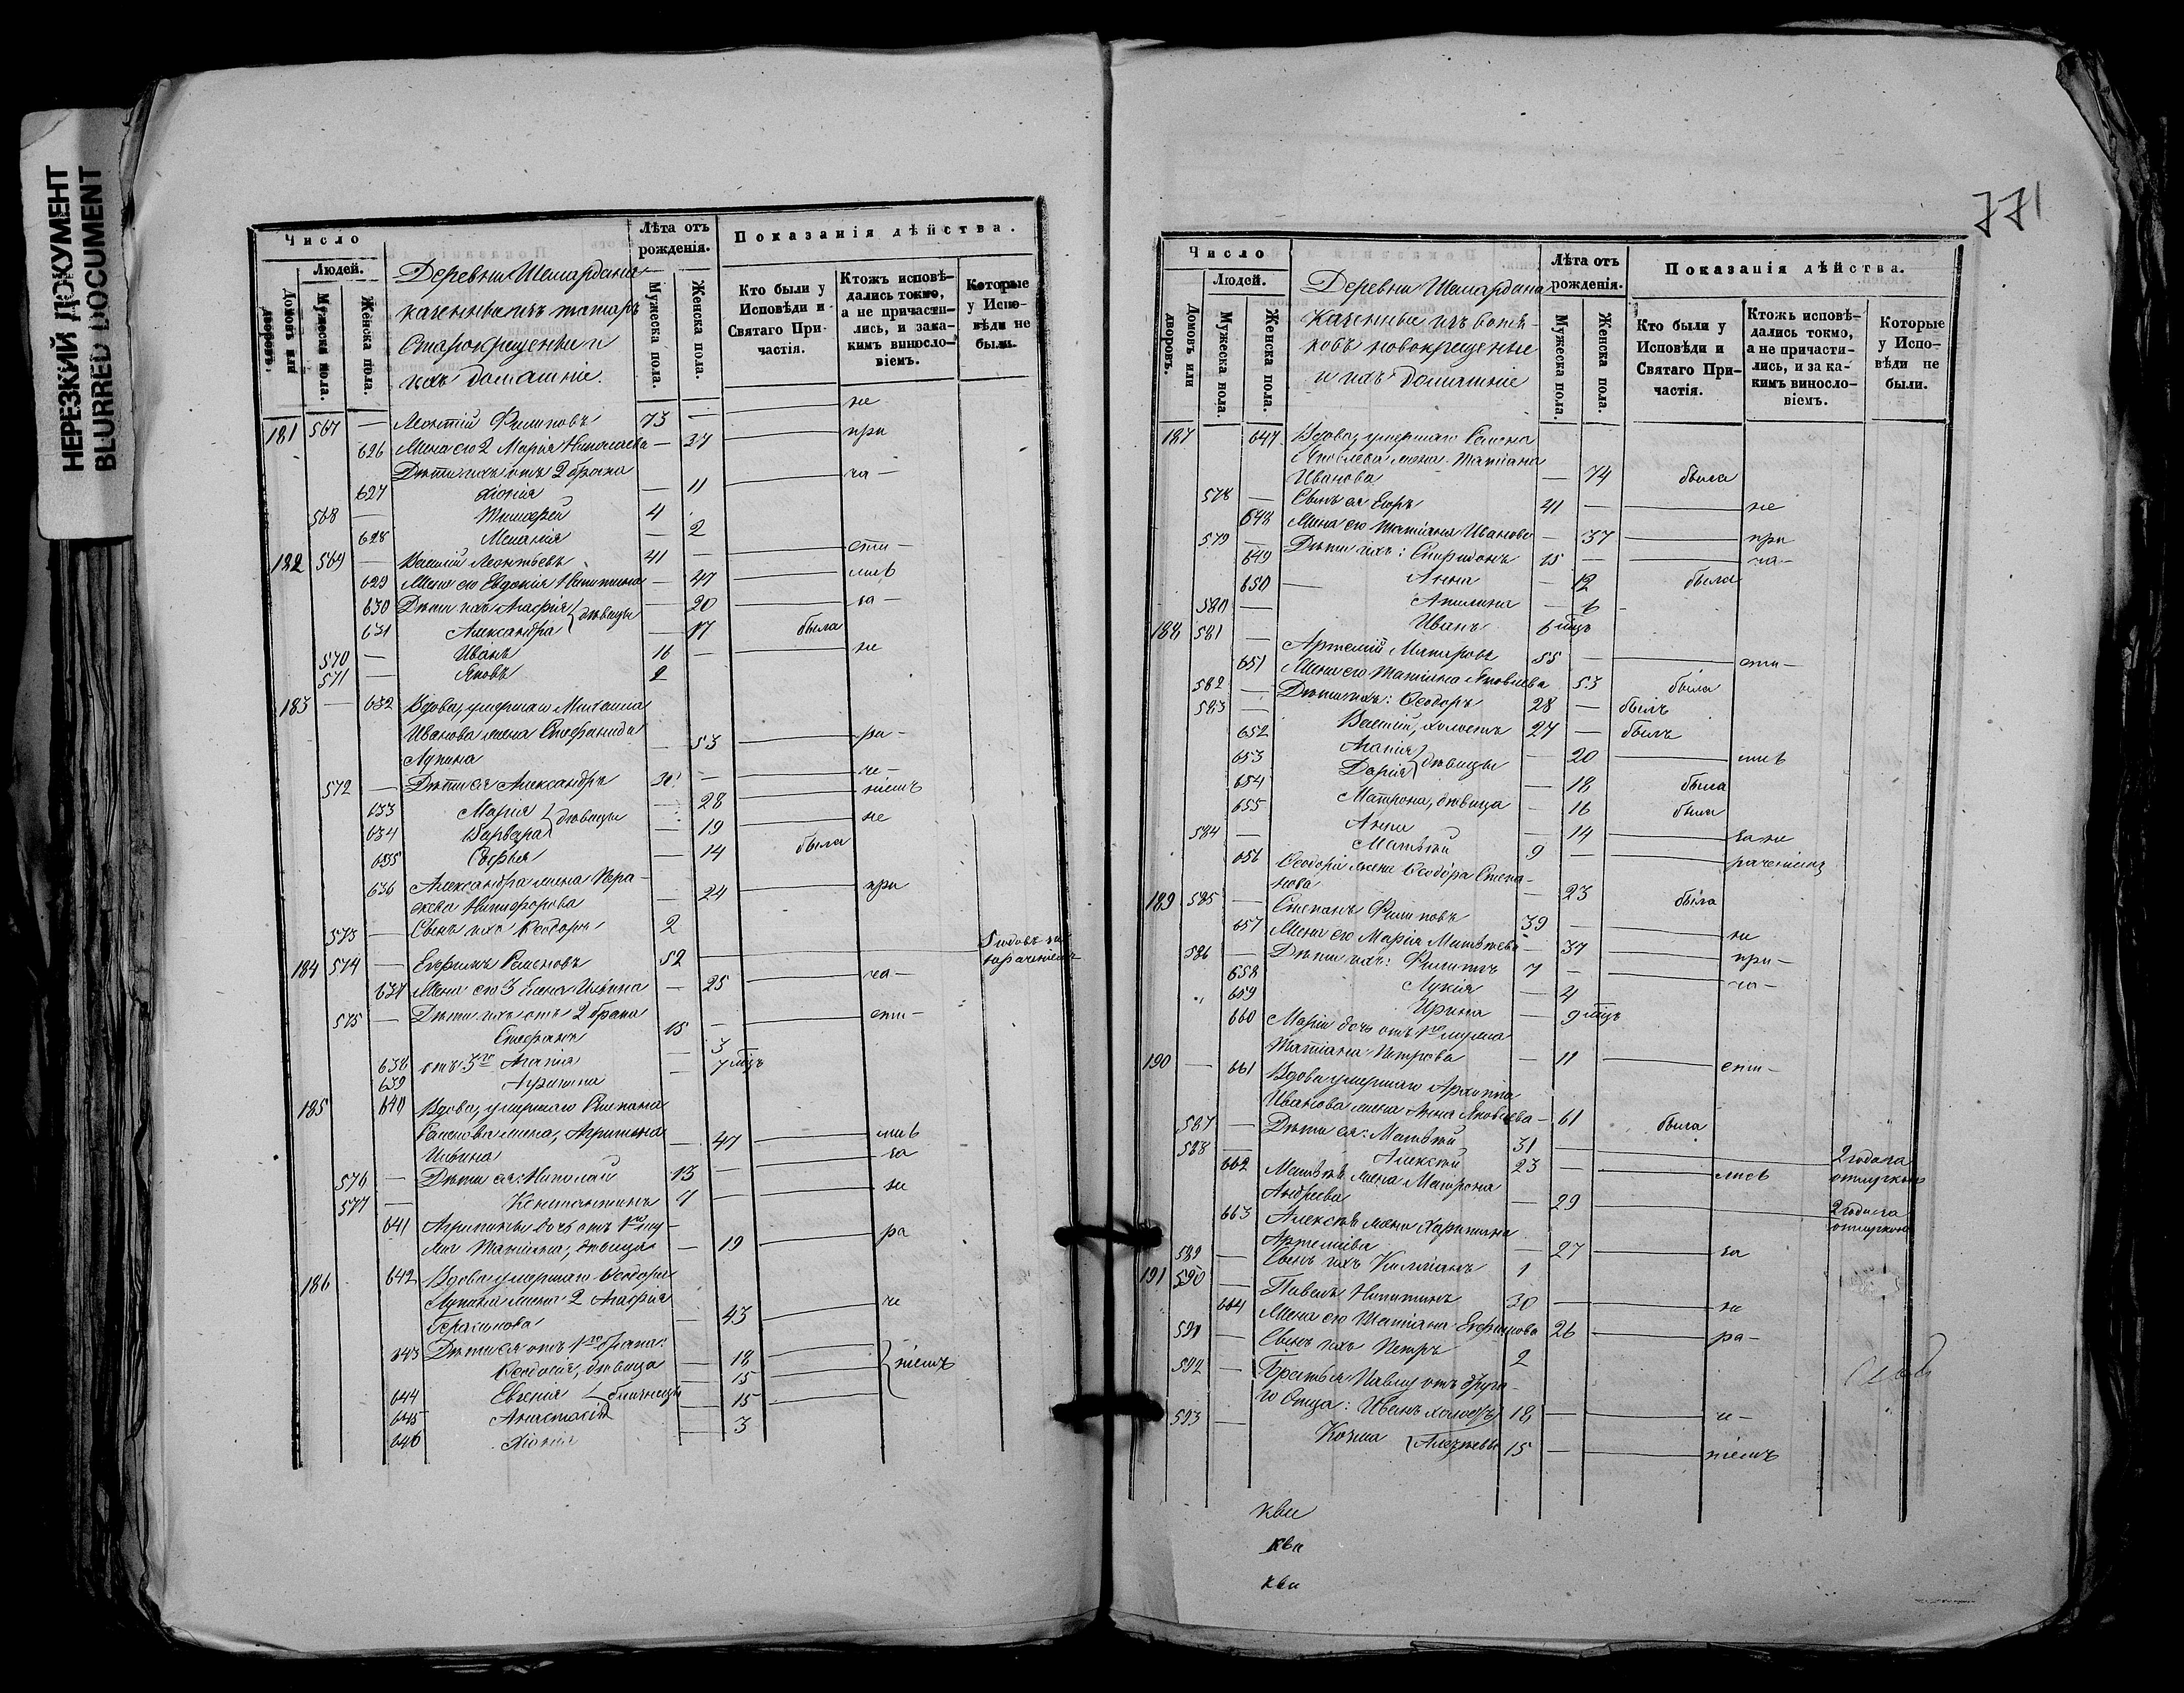 НЕРЕЗКИЙ ДОКУМЕНТ
BLURRED DOCUMENT
Число
Людей.
Домовъ или дворовъ.
Мужеска пола.
Женска пола.
Деревни Шемардана
казенныхъ татаръ
Старокрещенны и
ихъ домашніе.
Лѣта отъ рожденія.
Мужеска пола.
Женска пола.
Показанія дѣйства.
Кто были у Исповѣди и Святаго Причастія.
Ктожъ исповѣдались токмо, а не причастились, и за какимъ винословіемъ.
Которые у Исповѣди не были.
181 567 — Леонтій Филиповъ 73 — не
626 Жена его 2 Марія Николаева — 37 при
Дѣти ихъ отъ 2 брака
627 Хіонія — 11 ча —
568 — Тимофей 4
628 Меланія — 2
182 569 — Василій Леонтьевъ 41 — сти —
629 Жена его Евдокія Никитина — 47 лись
630 Дѣти ихъ Агафія — 20 за —
631 Александра } дѣвицы — 17 была
570 — Иванъ 16 — не
571 — Яковъ 2
183 — 632 Вдова, умершаго Михаила
Иванова жена Стефанида
Лукина — 53 ра —
572 — Дѣти ея Александръ 30 — че —
633 Марія — 28 ніемъ
634 Варвара } дѣвицы — 19 не
635 Софья — 14 была
636 Александра жена Пара-
скева Никифорова — 24 при
573 — Сынъ ихъ Ѳеодоръ 2
184 574 — Ефремъ Семеновъ 52 —
637 Жена его 3 Елена Ильина — 25 ча —
Дѣти ихъ отъ 2 брака
575 — Стефанъ 15 — сти —
638 отъ 3го Агапія — 3
639 Акулина — 7 мцъ
185 640 Вдова, умершаго Степана
Семенова жена, Агрипина
Ильина — 47 лись
576 — Дѣти ея: Николай 13 — за
577 — Константинъ 9 — не
641 Агрипины дочь отъ 1го му-
жа Татіана, дѣвица — 19 ра
186 642 Вдова умершаго Ѳеодора
Лукина жена 2 Агафія
Герасимова — 43 че
643 Дѣти ея отъ 1го брака:
Ѳеодосія, дѣвица — 18
644 Евгенія — 15
645 Анастасія } близнецы — 15 } ніемъ
646 Хіонія — 3
771
Число
Людей.
Домовъ или дворовъ.
Мужеска пола.
Женска пола.
Деревни Шемардана
Казенные изъ вотя-
ковъ новокрещеные
и ихъ домашніе
Лѣта отъ рожденія.
Мужеска пола.
Женска пола.
Показанія дѣйства.
Кто были у Исповѣди и Святаго Причастія.
Ктожъ исповѣдались токмо, а не причастились, и за какимъ винословіемъ.
Которые у Исповѣди не были.
187 647 Вдова, умершаго Семена
Яковлева жена Татіана
Иванова — 74 была
578 — Сынъ ея Егоръ 41 — не
648 Жена его Татіана Иванова — 37 при
579 — Дѣти ихъ: Спиридонъ 15 — ча —
649 Анна — 12 была
650 Акилина — 6
580 — Иванъ 6 мцъ
188 581 — Артемій Макаровъ 55 — сти —
651 Жена его Татіана Яковлева — 53 была
582 — Дѣти ихъ: Ѳеодоръ 28 — былъ
583 — Василій, холостъ 27 — былъ
652 Агапія — 20 лись
653 Дарія } дѣвицы — 18 была
654 Матрона, дѣвица — 16 была
655 Анна — 14 за не
584 — Матѳей 9 — раченіемъ
656 Ѳеодора жена Ѳеодора Степа-
нова — 23 была
189 585 — Степанъ Филиповъ 39 — не
657 Жена его Марія Матвѣева — 37 при —
586 — Дѣти ихъ: Филипъ 7 — ча —
658 Лукія — 4
659 Ирина — 9 мцъ
660 Маріи дочь отъ 1го мужа
Татіана Петрова — 11 сти —
190 — 661 Вдова умершаго Архипа
Иванова жена Анна Яковлева — 61 была
587 — Дѣти ея: Матѳей 31 — 2 года на
588 — Алексѣй 23 — лись отлучкою
662 Матѳея жена Матрона
Андреева — 29 2 года на
663 Алексѣя жена Харитина отлучкою
Артемьева — 27 за
589 — Сынъ ихъ 1
191 590 — Павелъ Никитинъ 30 — не
664 Жена его Татіана Ефимова 26 ра —
591 — Сынъ ихъ Петръ 2
592 — Братья Павлу отъ друга-
го Отца: Иванъ холостъ 18 — че —
593 — Козма 15 — ніемъ
кви
кви
кви